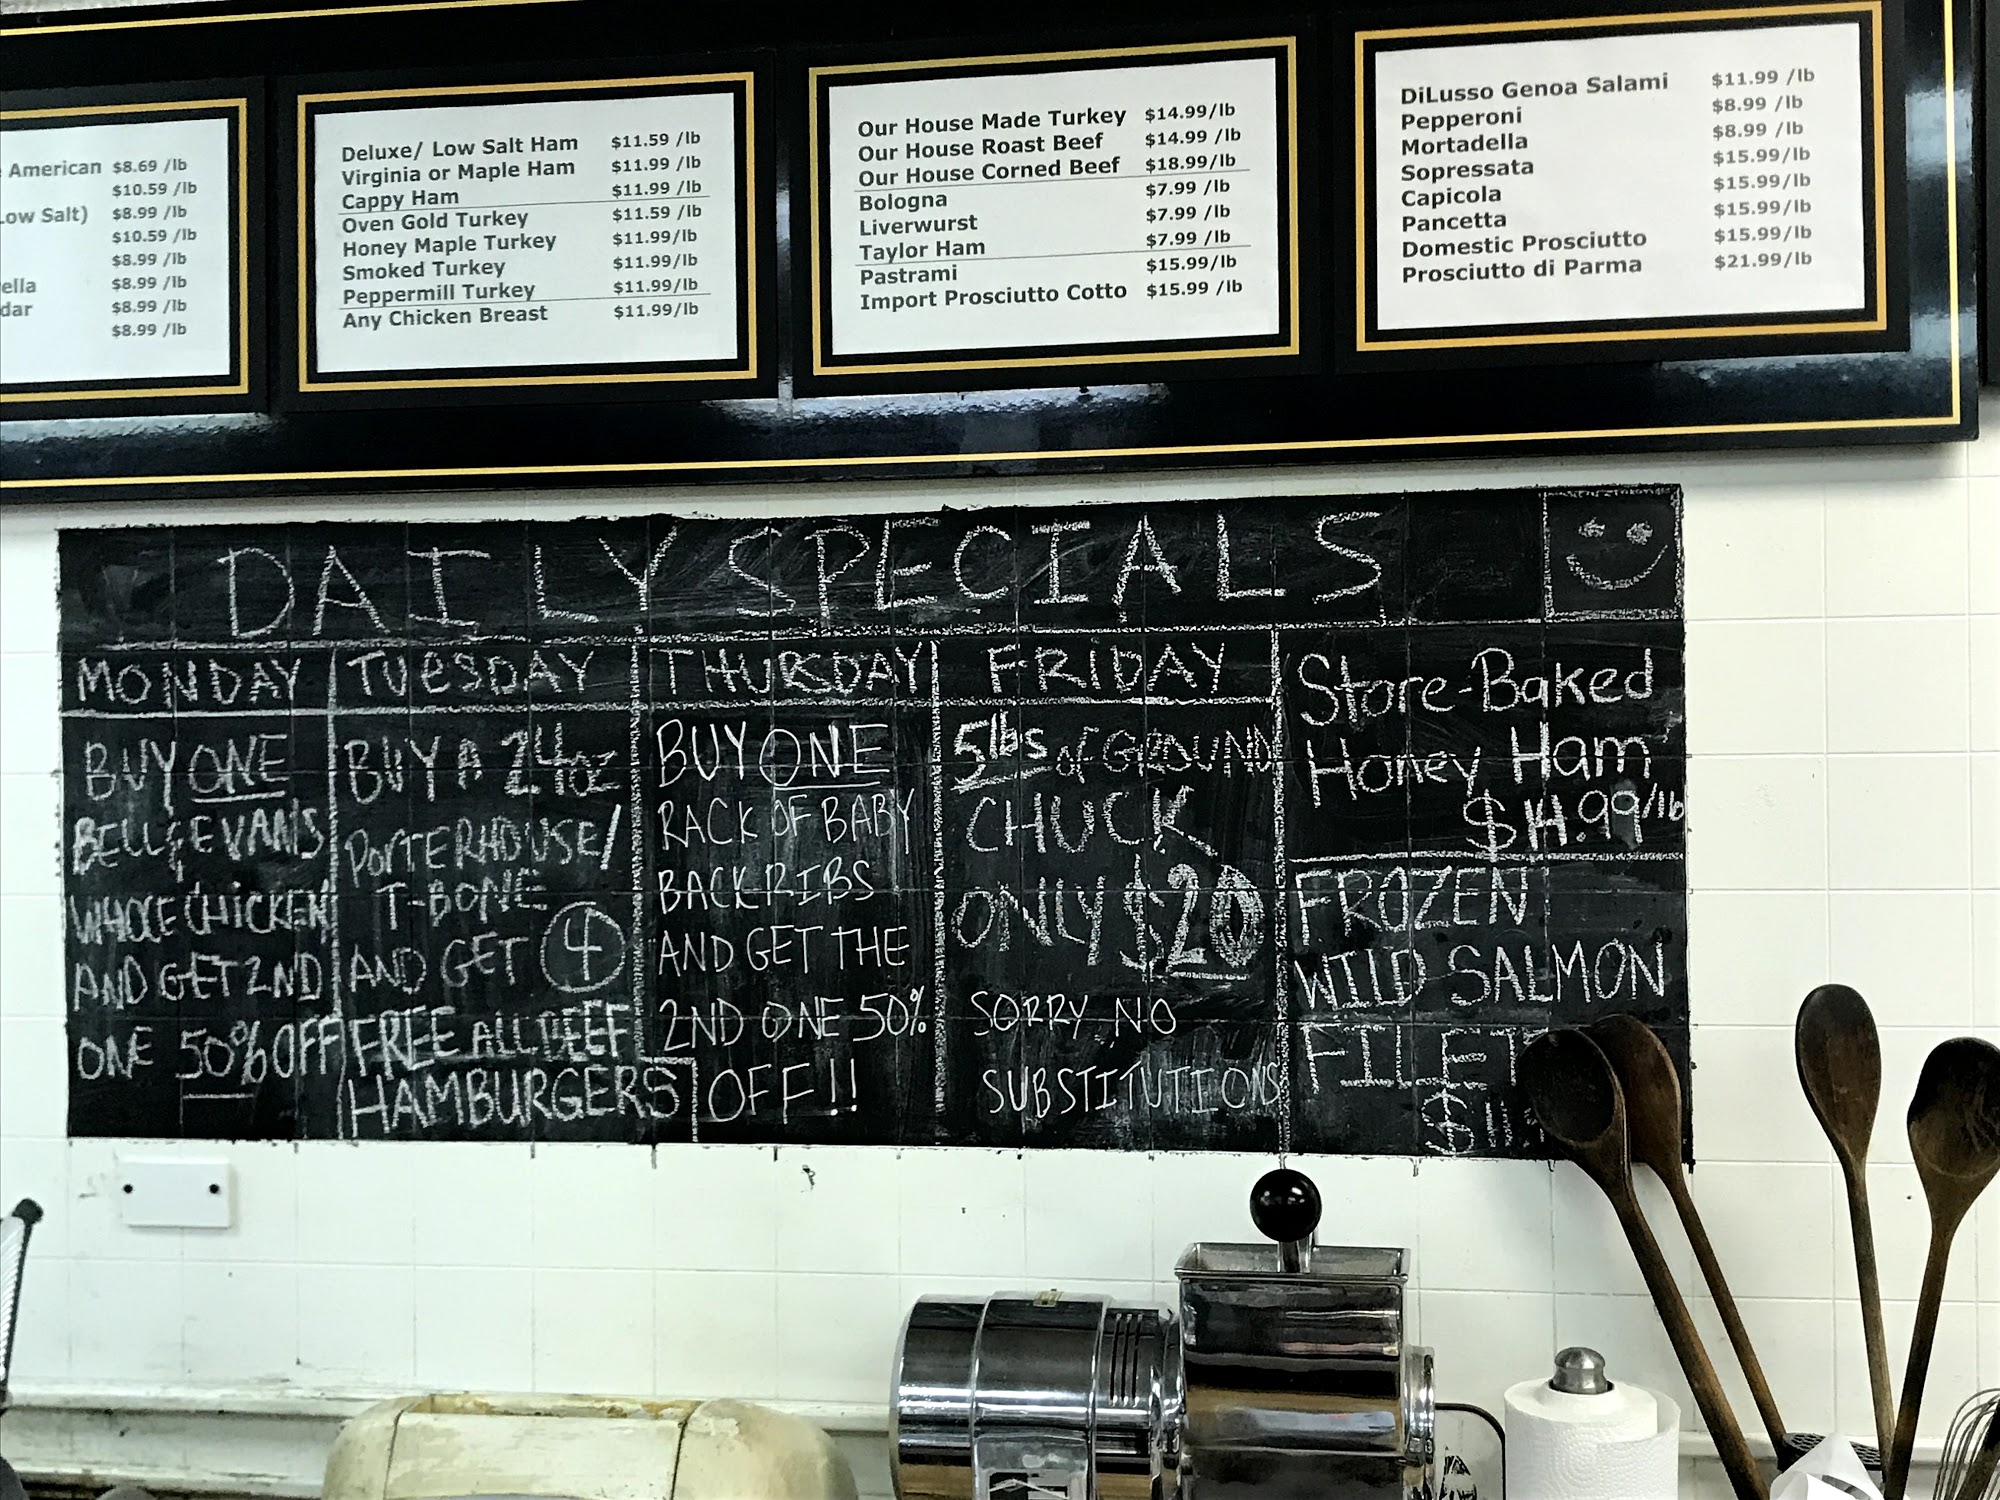 American $8.69 /lb
$10.59 /lb
Low Salt) $8.99 /lb
$10.59 /lb
$8.99 /lb
ella $8.99 /lb
dar $8.99 /lb
$8.99 /lb
Deluxe/ Low Salt Ham $11.59 /lb
Virginia or Maple Ham $11.99 /lb
Cappy Ham $11.99 /lb
Oven Gold Turkey $11.59 /lb
Honey Maple Turkey $11.99/lb
Smoked Turkey $11.99/lb
Peppermill Turkey $11.99/lb
Any Chicken Breast $11.99/lb
Our House Made Turkey $14.99/lb
Our House Roast Beef $14.99 /lb
Our House Corned Beef $18.99/lb
Bologna $7.99 /lb
Liverwurst $7.99 /lb
Taylor Ham $7.99 /lb
Pastrami $15.99/lb
Import Prosciutto Cotto $15.99 /lb
DiLusso Genoa Salami $11.99 /lb
Pepperoni $8.99 /lb
Mortadella $8.99 /lb
Sopressata $15.99/lb
Capicola $15.99/lb
Pancetta $15.99/lb
Domestic Prosciutto $15.99/lb
Prosciutto di Parma $21.99/lb
DAILY SPECIALS
MONDAY
BUY ONE
BELL & EVANS
WHOLE CHICKEN
AND GET 2ND
ONE 50% OFF
TUESDAY
BUY A 24oz
PORTERHOUSE/
T-BONE
AND GET 4
FREE ALL BEEF
HAMBURGERS
THURSDAY
BUY ONE
RACK OF BABY
BACK RIBS
AND GET THE
2ND ONE 50%
OFF!!
FRIDAY
5lbs of GROUND
CHUCK
ONLY $20
SORRY NO
SUBSTITUTIONS
Store-Baked
Honey Ham
$14.99/lb
FROZEN
WILD SALMON
FILET